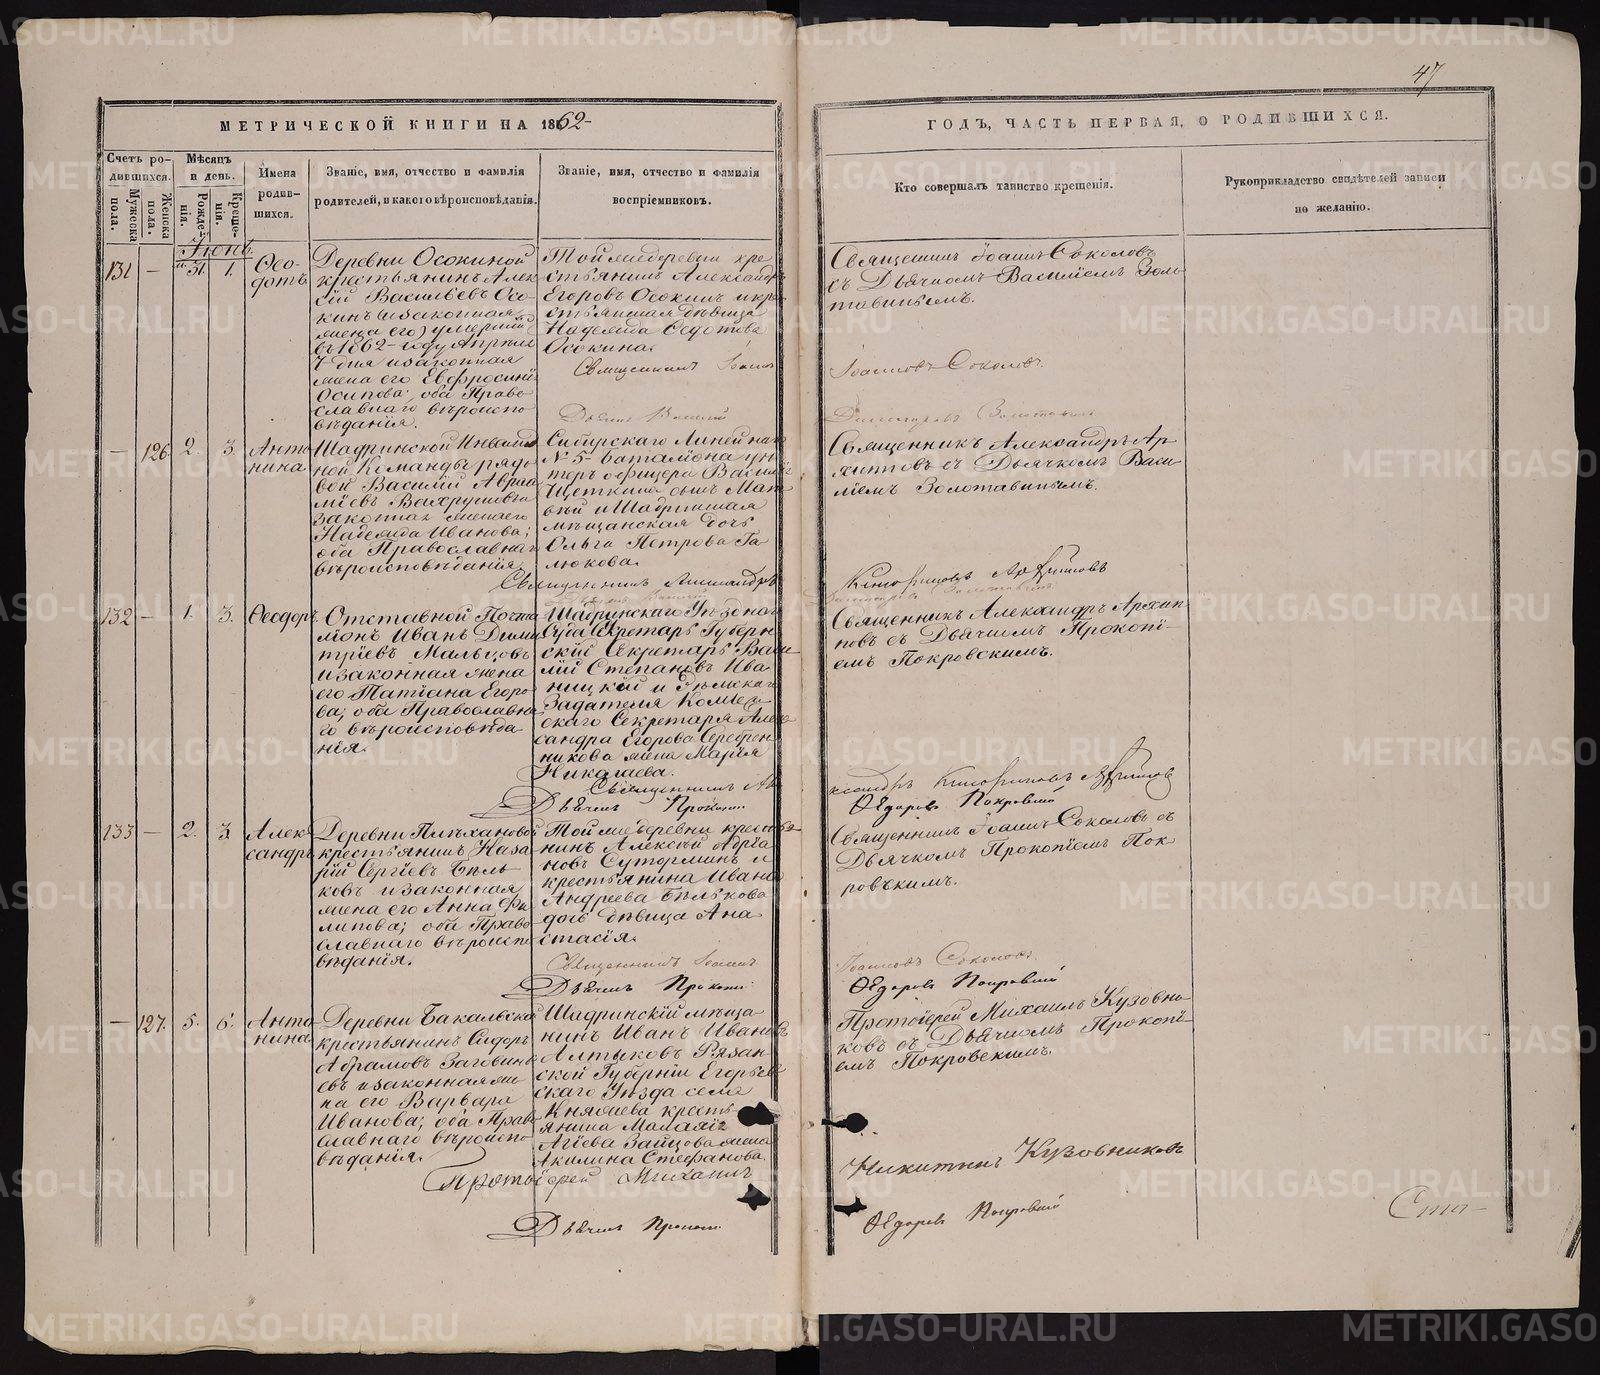 47
МЕТРИЧЕСКОЙ КНИГИ НА 1862
ГОДЪ, ЧАСТЬ ПЕРВАЯ, О РОДИВШИХСЯ.
Счетъ родившихся.
Мужеска пола.
Женска пола.
Мѣсяцъ и день.
Рожденія.
Крещенія.
Имена родившихся.
Званіе, имя, отчество и фамилія
родителей, и какого вѣроисповѣданія.
Званіе, имя, отчество и фамилія
воспріемниковъ.
Кто совершалъ таинство крещенія.
Рукоприкладство свидѣтелей записи
по желанію.
Іюнь
131 — 31. 1. Ѳеодотъ
Деревни Осокиной
крестьянинъ Алексѣй
Васильевъ Осокинъ
(и законная
жена его) умершій
въ 1862 году Апрѣля
7 дня и законная
жена его Евфросинія
Осипова; оба Православнаго
вѣроисповѣданія.
Той же деревни крестьянинъ
Александръ
Егоровъ Осокинъ и крестьянская
дѣвица
Надежда Ѳедотова
Осокина.
Священникъ Іоаннъ Соколовъ
съ Дьячкомъ Василіемъ Золотавинымъ.
Священникъ Іоаннъ
Іоанновъ Соколовъ.
Дьячекъ Василій
— 126. 2. 3. Антонина
Шадринской Инвалидной
Команды рядовой
Василій
Вахрушевъ
законная жена его
Надежда Иванова;
оба Православнаго
вѣроисповѣданія.
Сибирскаго Линейнаго
№ 5 баталіона унтеръ
офицера Василія
Щеткина сынъ Матвѣй
и Шадринская
мѣщанская дочь
Ольга Петрова Галюкова.
Священникъ Александръ Архиповъ
съ Дьячкомъ Василіемъ
Золотавинымъ.
Священникъ Александръ
132 — 1. 3. Ѳеодоръ
Отставной Почталіонъ
Иванъ Димитріевъ
Мальцовъ
и законная жена
его Татіана Егорова;
оба Православнаго
вѣроисповѣданія.
Шадринскаго Уѣзднаго
Суда Секретарь Губернскій
Секретарь Василій
Степановъ Иваницкій
и
Коллежскаго
Секретаря Александра
Егорова Серебренникова
жена Марія
Николаева.
Священникъ Александръ Архиповъ
съ Дьячкомъ Прокопіемъ
Покровскимъ.
Священникъ
Дьячекъ Прокопій
Ѳедоровъ Покровскій
133 — 2. 3. Александръ
Деревни Плѣхановой
крестьянинъ Назарій
Сергѣевъ Бѣльковъ
и законная
жена его Анна Филипова;
оба Православнаго
вѣроисповѣданія.
Той же деревни крестьянинъ
Алексѣй Адріановъ
Суторминъ и
крестьянина Ивана
Андреева Бѣлькова
дочь дѣвица Анастасія.
Священникъ Іоаннъ Соколовъ съ
Дьячкомъ Прокопіемъ Покровскимъ.
Священникъ Іоаннъ
Іоанновъ Соколовъ.
Дьячекъ Прокопій
Ѳедоровъ Покровскій
— 127. 5. 6. Антонина
Деревни Бакальской
крестьянинъ Сидоръ
Абрамовъ
и законная жена
его Варвара
Иванова; оба Православнаго
вѣроисповѣданія.
Шадринскій мѣщанинъ
Иванъ Ивановъ
Алтыковъ Рязанской
Губерніи Егорьевскаго
Уѣзда села
Князева крестьянина
Малахія
Агѣева Зайцова жена
Акилина Стефанова.
Протоіерей Михаилъ Кузовниковъ
съ Дьячкомъ Прокопіемъ
Покровскимъ.
Протоіерей Михаилъ
Никитинъ Кузовниковъ
Дьячекъ Прокопій
Ѳедоровъ Покровскій
METRIKI.GASO-URAL.RU